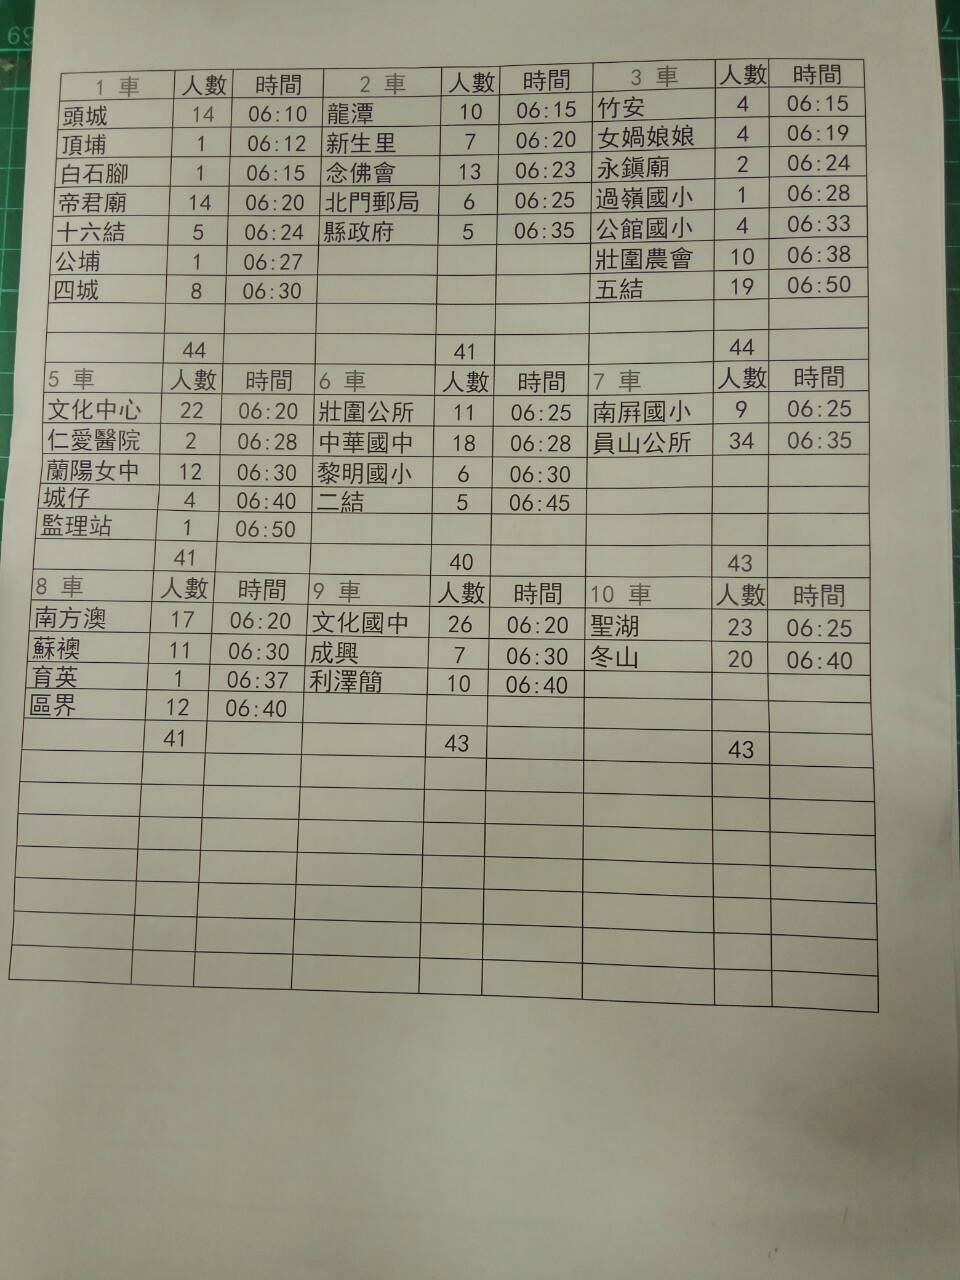 69
1 車 人數 時間 2 車 人數 時間 3 車 人數 時間
頭城 14 06:10 龍潭 10 06:15 竹安 4 06:15
頂埔 1 06:12 新生里 7 06:20 女媧娘娘 4 06:19
白石腳 1 06:15 念佛會 13 06:23 永鎮廟 2 06:24
帝君廟 14 06:20 北門郵局 6 06:25 過嶺國小 1 06:28
十六結 5 06:24 縣政府 5 06:35 公館國小 4 06:33
公埔 1 06:27 壯圍農會 10 06:38
四城 8 06:30 五結 19 06:50
44 41 44
5 車 人數 時間 6 車 人數 時間 7 車 人數 時間
文化中心 22 06:20 壯圍公所 11 06:25 南屏國小 9 06:25
仁愛醫院 2 06:28 中華國中 18 06:28 員山公所 34 06:35
蘭陽女中 12 06:30 黎明國小 6 06:30
城仔 4 06:40 二結 5 06:45
監理站 1 06:50
41 40 43
8 車 人數 時間 9 車 人數 時間 10 車 人數 時間
南方澳 17 06:20 文化國中 26 06:20 聖湖 23 06:25
蘇襖 11 06:30 成興 7 06:30 冬山 20 06:40
育英 1 06:37 利澤簡 10 06:40
區界 12 06:40
41 43 43